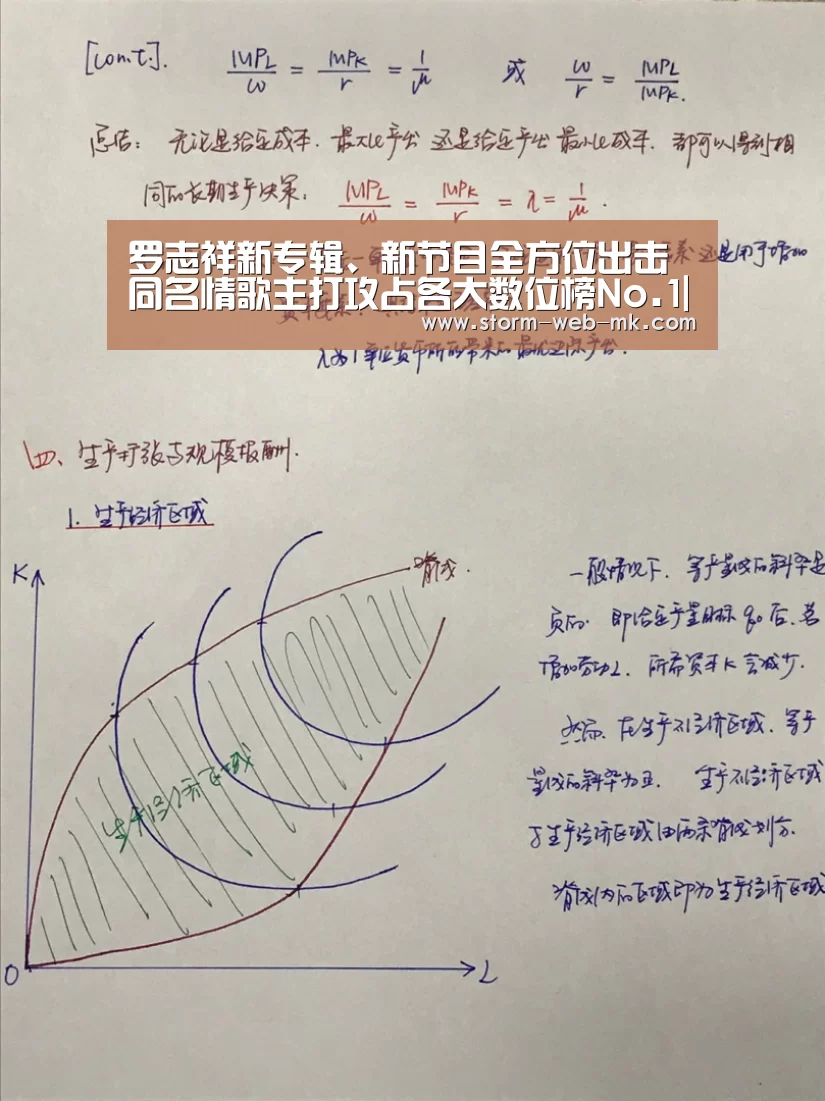 [cont.]. MPL/w = MPK/r = 1/μ 或 w/r = MPL/MPK.
总结: 无论是给定成本. 最大化产出 还是给定产出 最小化成本. 都可以得到相
同的长期生产决策: MPL/w = MPK/r = λ = 1/μ.
还是用于增加
罗志祥新专辑、新节目全方位出击
同名情歌主打攻占各大数位榜No.1|
www.storm-web-mk.com
λ为1单位货币所能带来的最优边际产出.
四、生产扩张与规模报酬.
1. 生产经济区域
K
脊线.
生产经济区域
O
L
一般情况下. 等产量线的斜率是
负的. 即给定产量目标 q0 后, 若
增加劳动L. 所需资本K会减少.
然而. 在生产不经济区域. 等产
量线的斜率为正. 生产不经济区域
与生产经济区域由两条脊线划分.
脊线内的区域即为生产经济区域